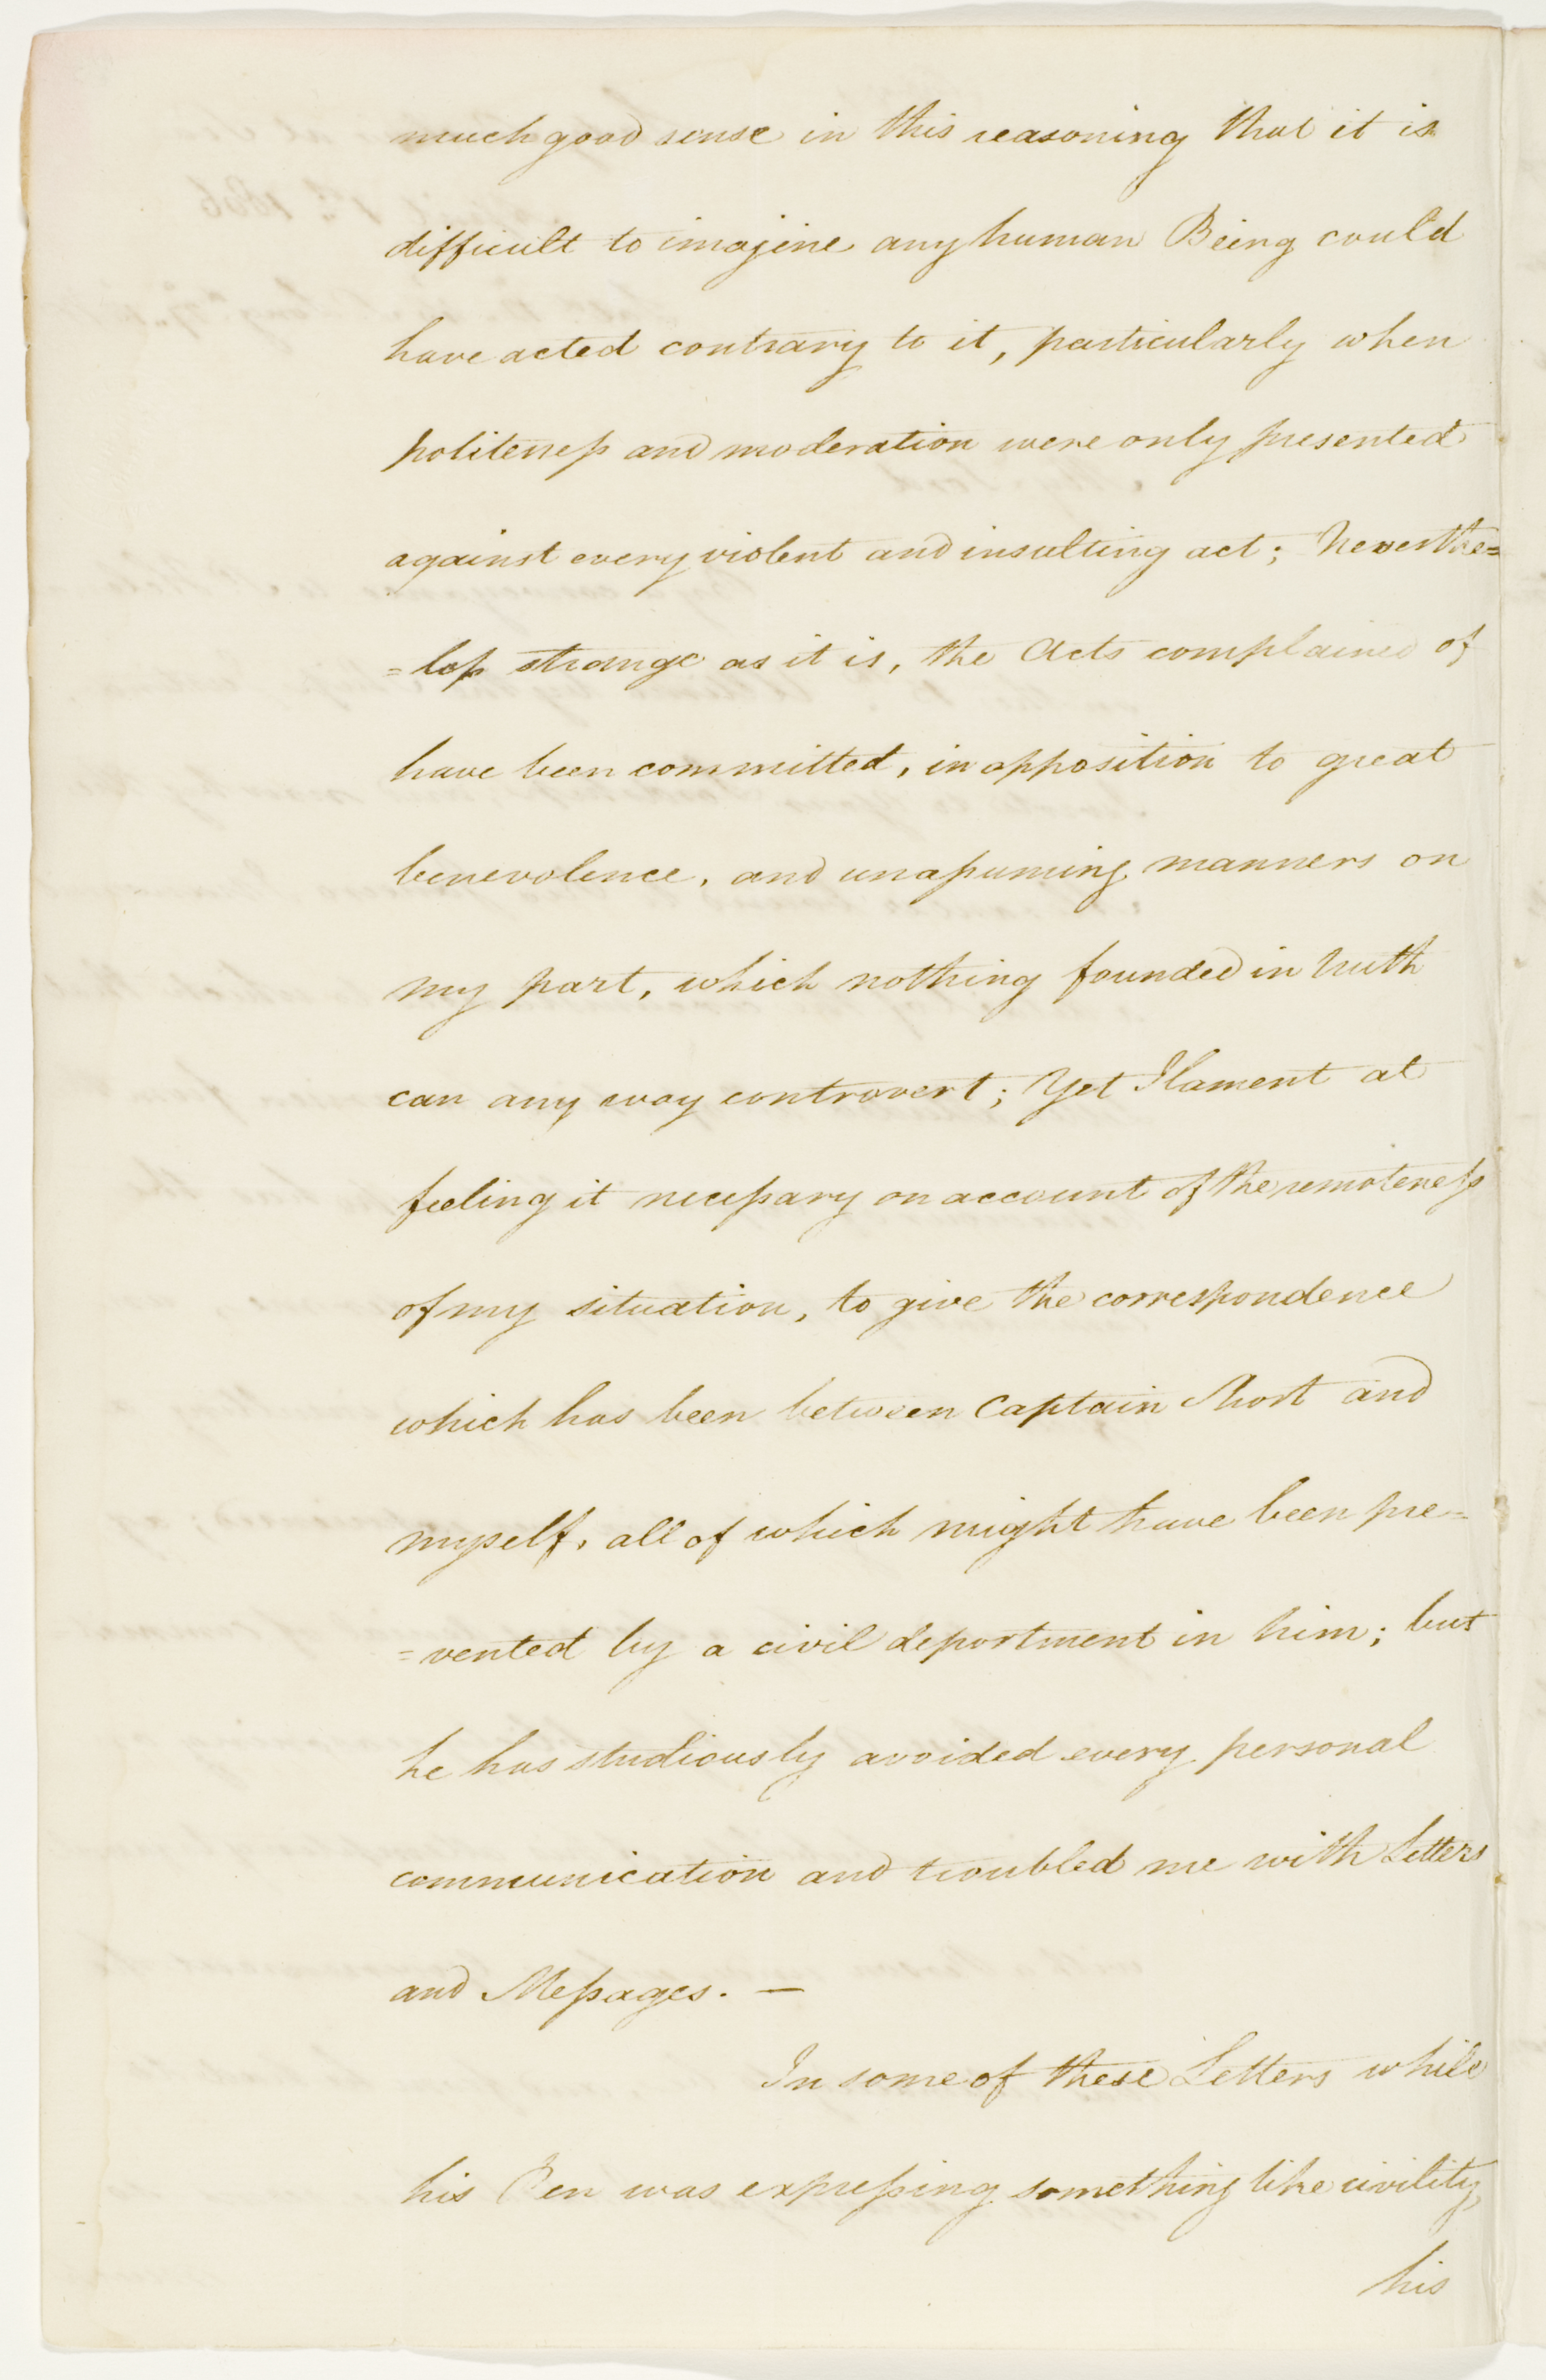 much good sense in this reasoning that it is
difficult to imagine any human Being could
have acted contrary to it, particularly when
politeness and moderation were only presented
against every violent and insulting act; Neverthe=
=less strange as it is, the Acts complained of
have been committed, in opposition to great
benevolence, and unassuming manners on
my part, which nothing founded in truth
can any way controvert; Yet I lament at
feeling it necessary on account of the remoteness
of my situation, to give the correspondence
which has been between Captain Short and
myself, all of which might have been pre=
=vented by a civil deportment in him; but
he has studiously avoided every personal
communication and troubled me with Letters
and Messages. —
In some of these Letters while
his Pen was expressing something like civility,
his